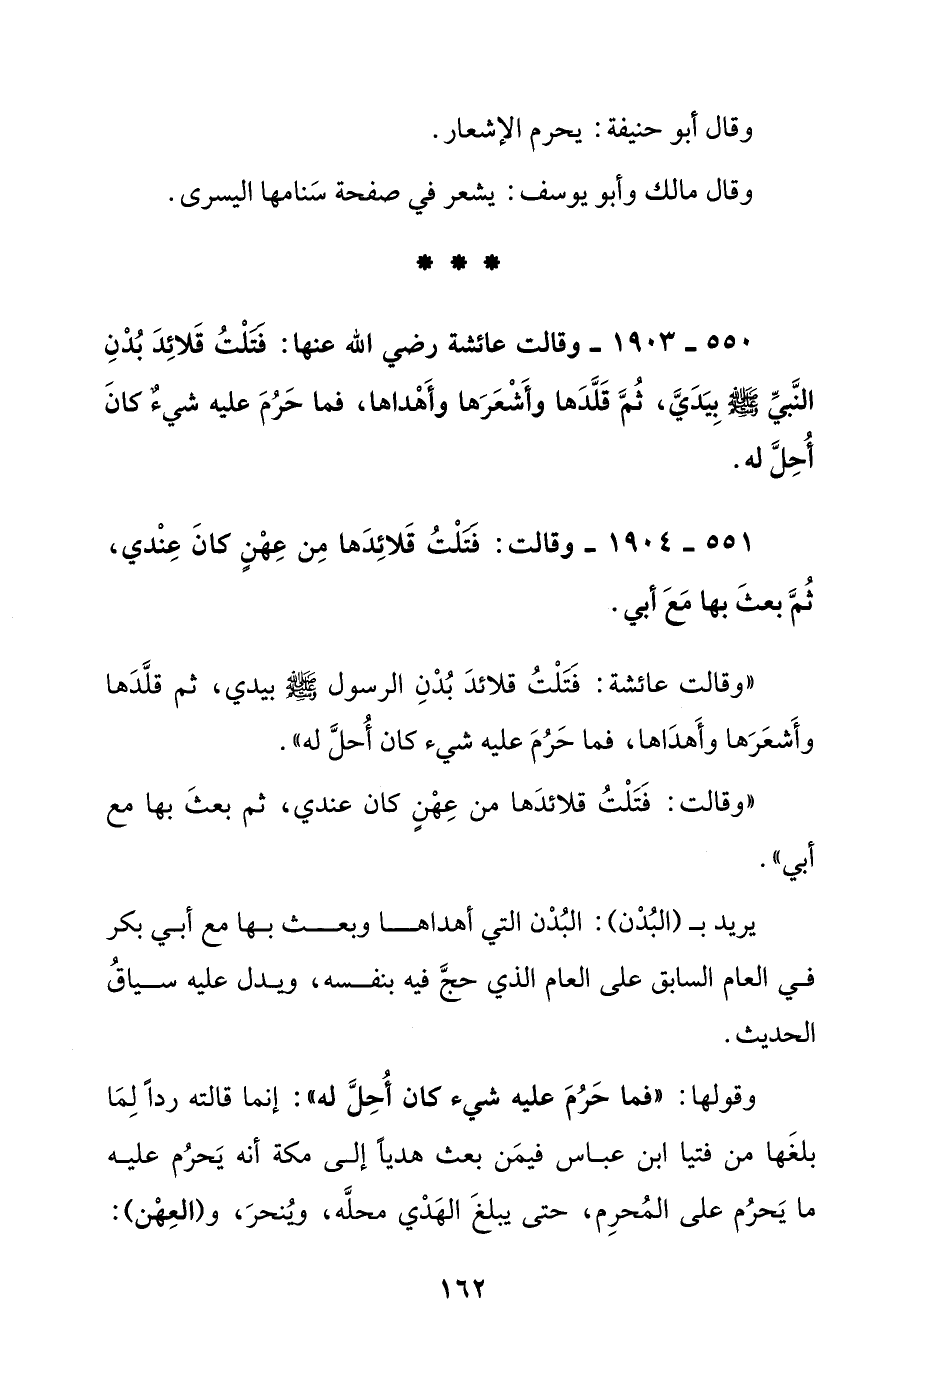 وقال أبو حنيفة: يحرم الإشعار.
وقال مالك وأبو يوسف: يشعر في صفحة سَنامها اليسرى.
* * *
٥٥٠ ـ ١٩٠٣ ـ وقالت عائشة رضي الله عنها: فَتَلْتُ قَلائِدَ بُدْنِ
النَّبيِّ ﷺ بِيَدَيَّ، ثُمَّ قَلَّدَها وأَشْعَرَها وأَهْداها، فما حَرُمَ عليه شيءٌ كانَ
أُحِلَّ له.
٥٥١ ـ ١٩٠٤ ـ وقالت: فَتَلْتُ قَلائِدَها مِن عِهْنٍ كانَ عِنْدي،
ثُمَّ بعثَ بها مَعَ أبي.
«وقالت عائشة: فَتَلْتُ قلائدَ بُدْنِ الرسول ﷺ بيدي، ثم قلَّدَها
وأَشعَرَها وأَهدَاها، فما حَرُمَ عليه شيء كان أُحلَّ له».
«وقالت: فَتَلْتُ قلائدَها من عِهْنٍ كان عندي، ثم بعثَ بها مع
أبي».
يريد بـ (البُدْن): البُدْن التي أهداها وبعث بها مع أبي بكر
في العام السابق على العام الذي حجَّ فيه بنفسه، ويدل عليه سياقُ
الحديث.
وقولها: «فما حَرُمَ عليه شيء كان أُحِلَّ له»: إنما قالته رداً لِمَا
بلغَها من فتيا ابن عباس فيمَن بعث هدياً إلى مكة أنه يَحرُم عليه
ما يَحرُم على المُحرِم، حتى يبلغَ الهَدْي محلَّه، ويُنحرَ، و(العِهْن):
١٦٢